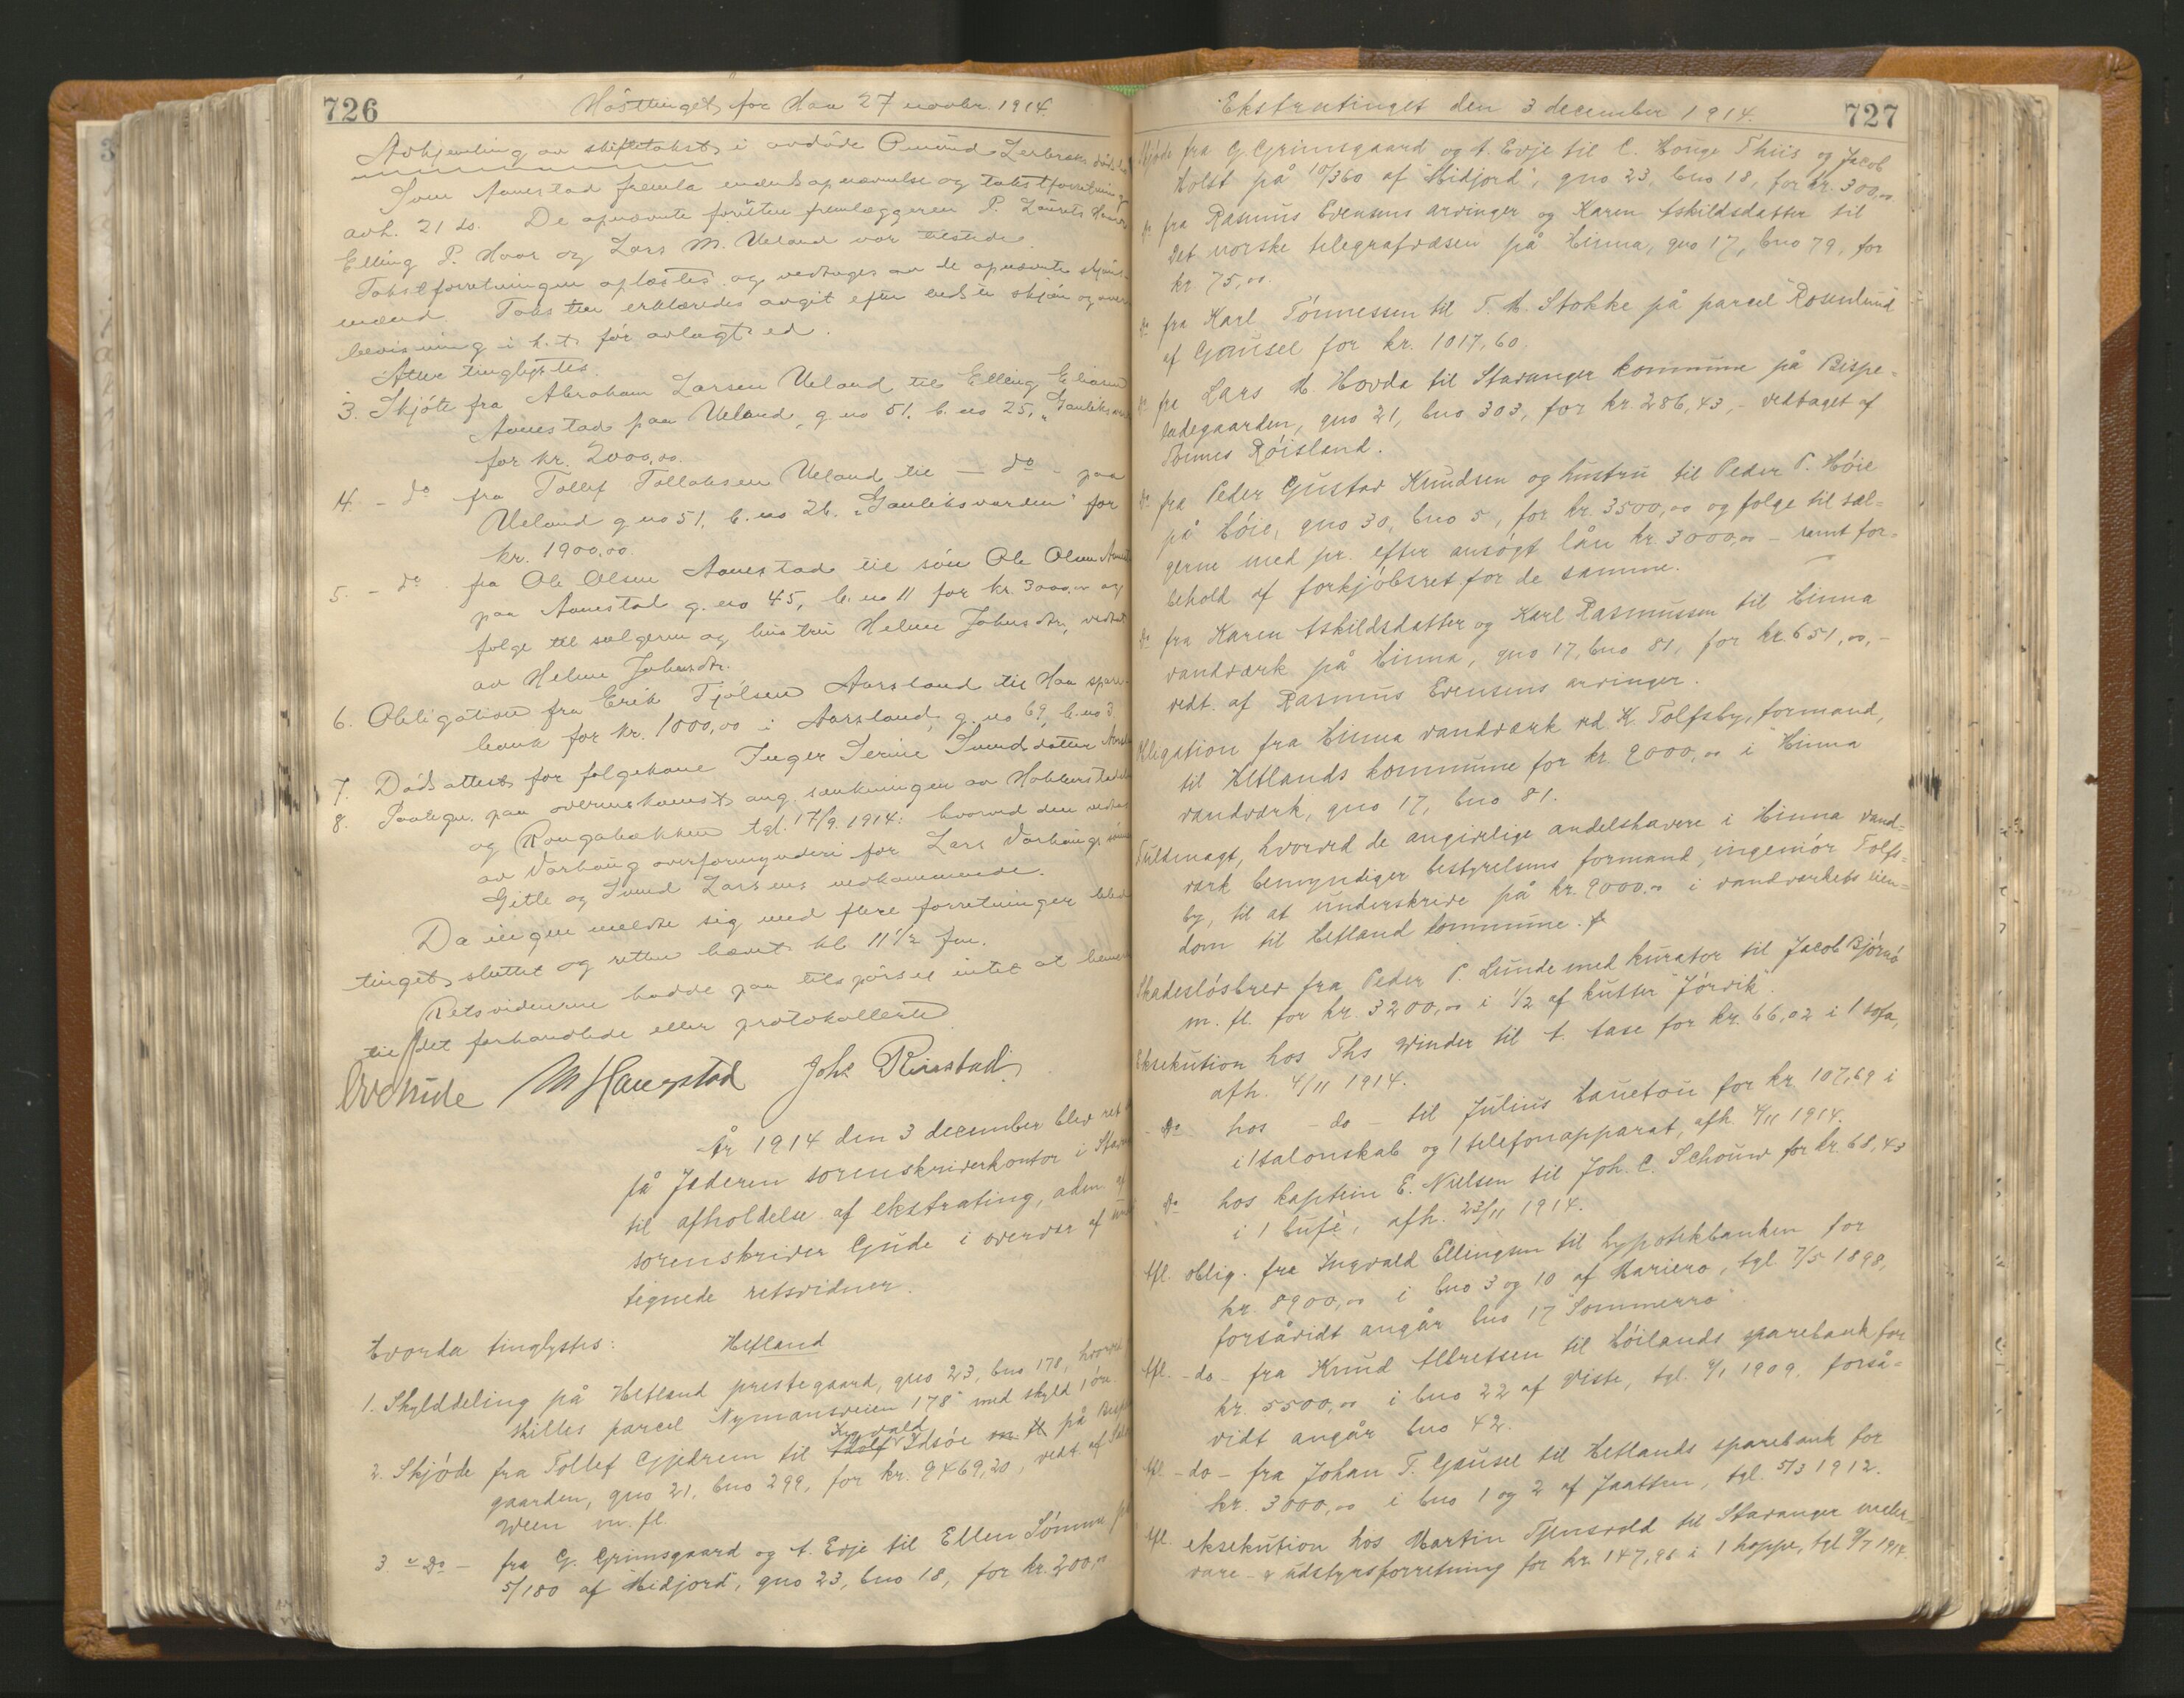 726
Hösttinget for Haa 27 novbr. 1914.
Avhjemling av skiftetakst i avdöde Omund Larsens dödsbo
Sven Aanestad fremla endels opnævnelse og takstforretning
avh. 21 ds. De opnævnte foruten fremlæggeren P. Laurits Haar
Elling P. Haar og Lars M. Ueland var tilstede.
Takstforretningen oplæstes og vedtoges av de opnævnte skjöns-
mænd. Taksten erklæredes avgit efter bedste skjön og over-
bevisning i h.t. för avlagt ed.
Atter tinglystes.
3. Skjöte fra Abraham Larsen Ueland til Elling Eliassen
Aanestad paa Ueland, g.no 51. b.no 25, "Gauleks
for kr. 2000,00.
4. - do fra Tollef Tollaksen Ueland til - do - paa
Ueland g.no 51. b.no 26. "Gauleksvarden" for
kr. 1900,00.
5. - do - fra Ole Olsen Aanestad til sön Ole Olsen
paa Aanestad g.no 45, b.no 11 for kr. 3000,00 og
folge til sælgeren og hustru Helene Johnsdtr., vedtat
av Helene Johnsdtr.
6. Obligation fra Erik Tjölsen Aarsland til Haa spare-
bank for kr. 1000,00 i Aarsland, g.no 69, b.no 3
7. Dödsattest for folgekone Inger Serine Svendsdatter
8. Paategn. paa overenskomst ang. sænkningen av
og Rongabækken tgl. 17/9. 1914: hvorved den vedtas
av Varhaug overformynderi for Lars Varhaugs
Gitle og Svend Larsens vedkommende.
Da ingen meldte sig med flere forretninger blev
tinget sluttet og retten hævet kl. 11 1/2 fm.
Retsvidnerne hadde paa tilspörsel intet at bemerke
til det forhandlede eller protokollerte
Ove Gude M Haugstad Johs. Ristad
År 1914 den 3 december blev ret
på Jæderen sorenskriverkontor i
til afholdelse af ekstrating, adm. af
sorenskriver Gude i overvær af
tegnede retsvidner.
Hvorda tinglystes: Hetland
1. Skylddeling på Hetland prestegaard, gno 23, bno 178, hvorved
skilles parcel "Nymansveien 178" med skyld 1 öre.
Ingvald
2. Skjöde fra Tollef Gjedrem til Idsöe m. fl. på
gaarden, gno 21, bno 299, for kr. 9469,20, vedt. af
Ween m. fl.
3 - Do - fra G. Grimsgaard og A. Evje til Ellen Sömme
5/180 af "Midjord", gno 23, bno 18, for kr. 200,00
727
Ekstratinget den 3 december 1914.
Skjöde fra G. Grimsgaard og A. Evje til C. Houge Thiis og Jacob
Holst på 10/360 af "Midjord", gno 23, bno 18, for kr. 300,00
do fra Rasmus Evensens arvinger og Karen Askildsdatter til
Det norske telegrafvæsen på Hinna, gno 17, bno 79, for
kr 75,00.
do fra Karl Tönnessen til T. M. Stokke på parcel "Rosenlund"
af Gausel for kr. 1017,60.
do fra Lars M. Hovda til Stavanger kommune på Bispe-
ladegaarden, gno 21, bno 303, for kr. 286,43, - vedtaget af
Tönnes Röisland.
do fra Peder Gustav Knudsen og hustru til Peder P. Höie
på Höie, gno 30, bno 5, for kr. 3500,00 og folge til sæl-
gerne med pr. efter ansögt lån kr. 3000,00 - samt for-
behold af forkjöbsret for de samme.
do fra Karen Askildsdatter og Karl Rasmussen til Hinna
vandværk på Hinna, gno 17, bno 81, for kr. 651,00, -
vedt. af Rasmus Evensens arvinger.
Obligation fra Hinna vandværk ved K. Tolfsby, formand,
til Hetlands kommune for kr. 9000,00 i Hinna
vandværk, gno 17, bno 81.
Fuldmagt, hvorved de angivelige andelshavere i Hinna vand-
værk bemyndiger bestyrelsens formand, ingeniör Tolfs-
by, til at underskrive på kr. 9000.00 i vandværkets eien-
dom til Hetland kommune.
Skadeslösbrev fra Peder P. Lunde med kurator til Jacob Björnö
m. fl. for kr. 3200,00 i 1/2 af kutter "Jörvik".
Eksekution hos Ths Winder til A. Aase for kr. 66,02 i 1 sofa,
afh. 4/11 1914.
- Do hos - do - til Julius Hauetou for kr. 107,69 i
i 1 salonskab og 1 telefonapparat, afh. 4/11 1914.
Do hos kaptein E. Nielsen til Joh. C. Schouw for kr. 68,43
i 1 bufè, afh. 23/11 1914.
Afl. oblig. fra Ingvald Ellingsen til hypotekbanken for
kr. 8900,00 i bno 3 og 10 af Mariero, tgl. 7/5 1898,
forsåvidt angår bno 17 "Sommerro".
Afl. - do - fra Knud Albretsen til Höilands sparebank for
kr. 5500,00 i bno 22 af Viste, tgl. 4/1 1909, forså-
vidt angår bno 42.
Afl - do - fra Johan T. Gausel til Hetlands sparebank for
kr. 3000,00 i bno 1 og 2 af Jaatten, tgl. 5/3 1912.
Afl. eksekution hos Martin Tjensvold til Stavanger
vare- & udstyrsforretning for kr. 147,96 i 1 hoppe, tgl 9/7 1914.